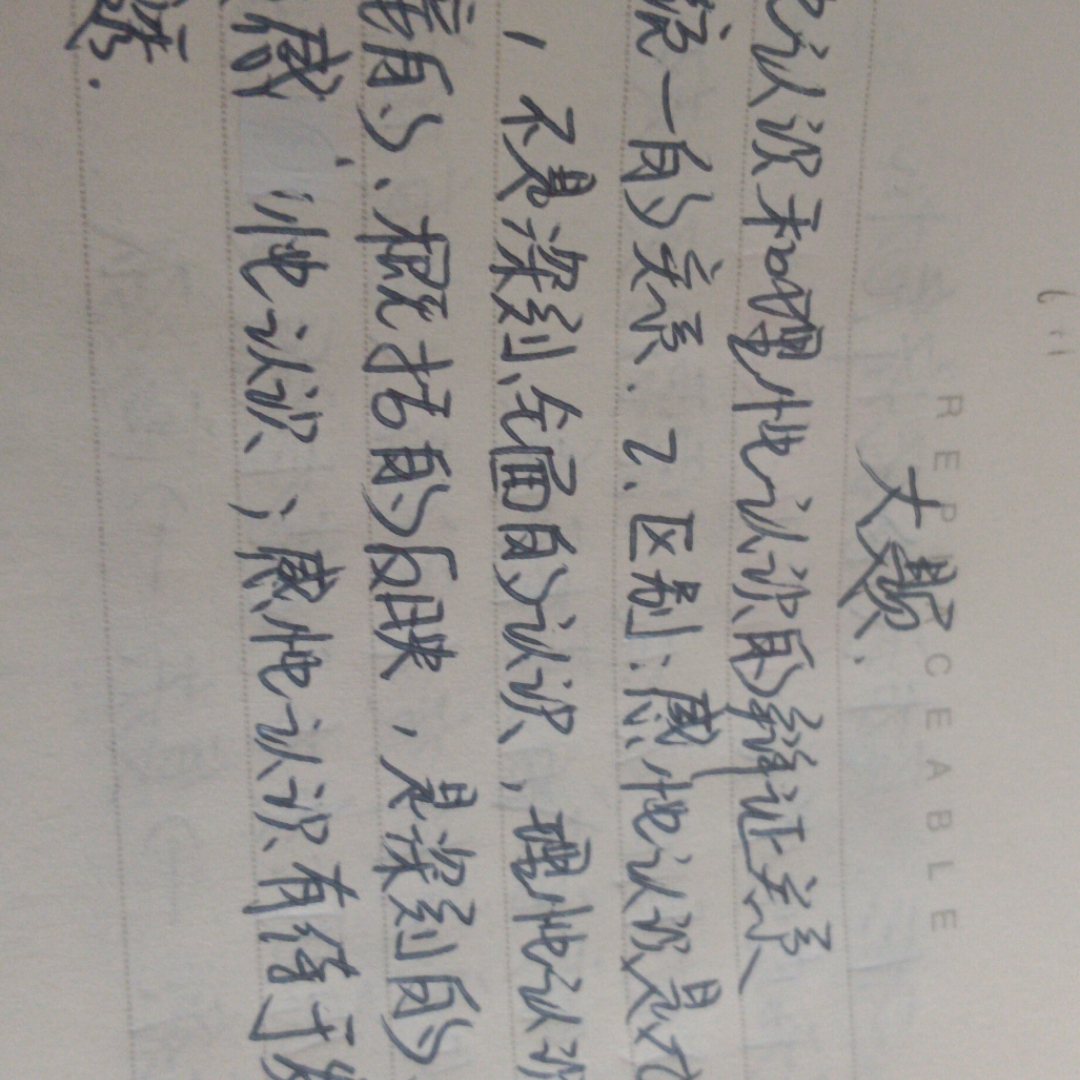 REPLACEABLE
大题.
认识和理性认识的辩证关系
统一的关系. 2. 区别: 感性认识是
, 不是深刻、全面的认识, 理性认识
的、概括的反映, 是深刻的
感性认识; 感性认识有待于发